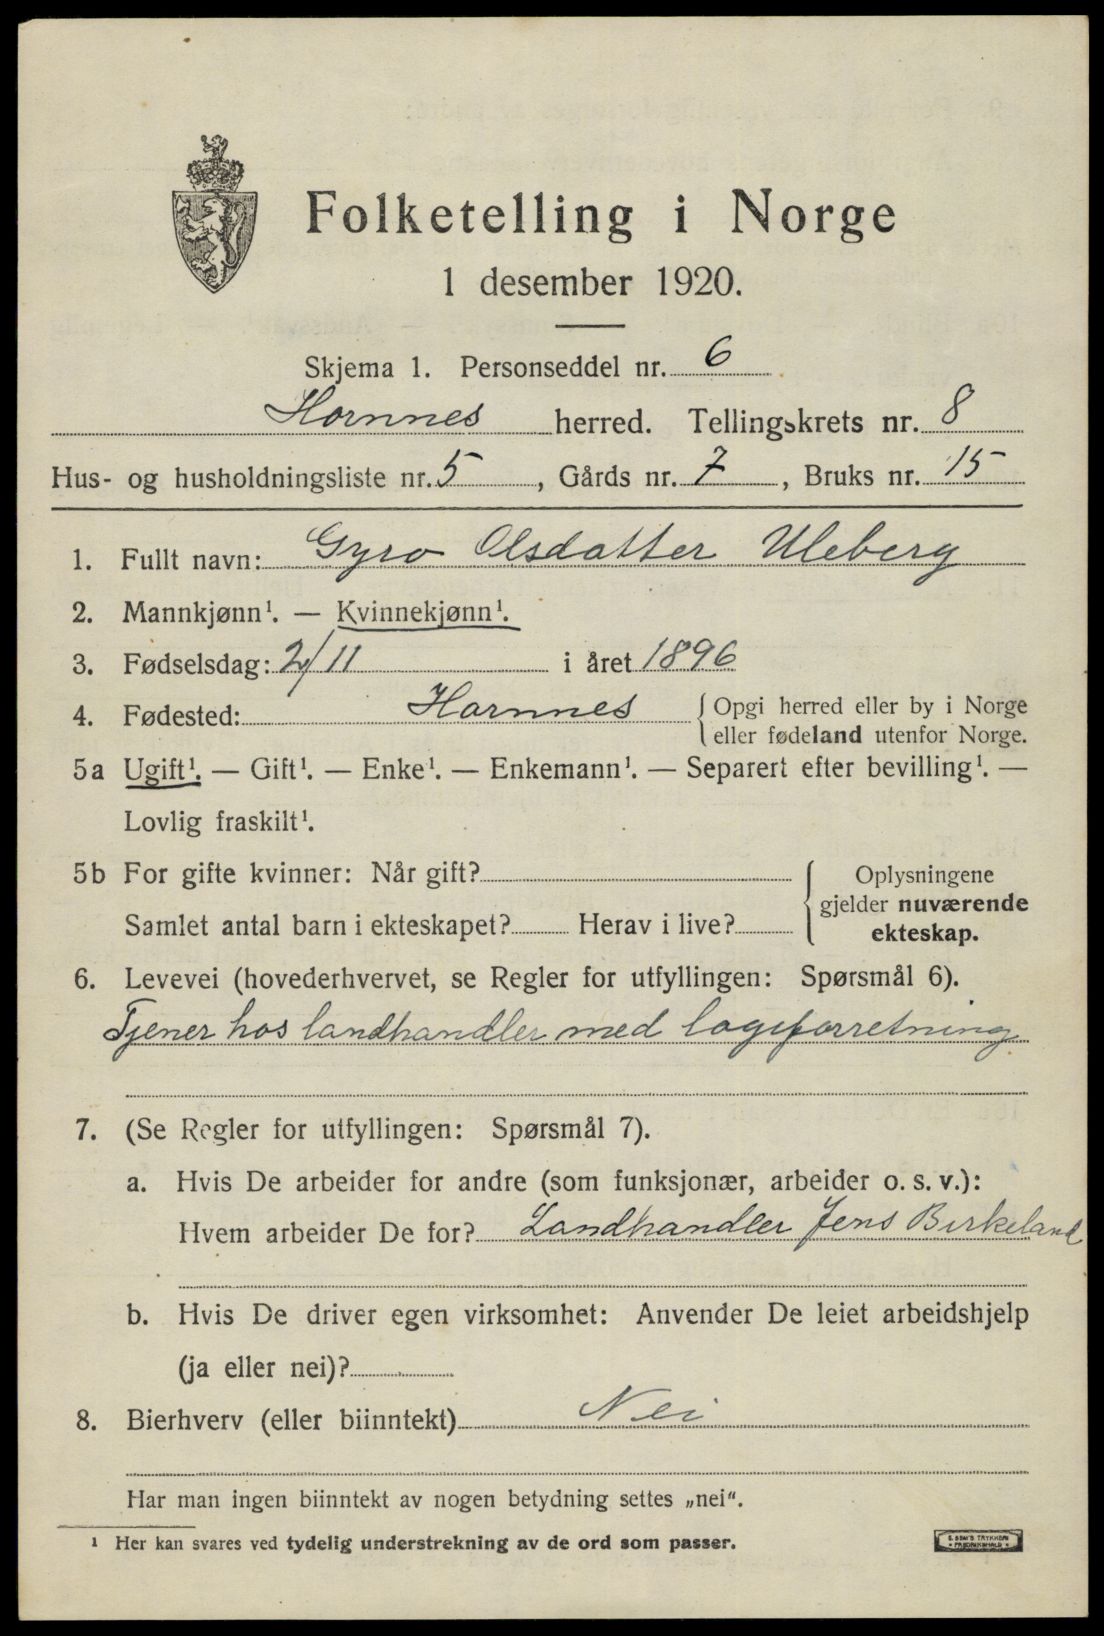 Folketelling i Norge
1 desember 1920.
Skjema 1. Personseddel nr. 6
Hornnes herred. Tellingskrets nr. 8
Hus- og husholdningsliste nr. 5, Gårds nr. 7, Bruks nr. 15
1. Fullt navn: Gyro Olsdatter Uleberg
2. Mannkjønn¹. — Kvinnekjønn¹.
3. Fødselsdag: 2/11 i året 1896
4. Fødested: Hornnes { Opgi herred eller by i Norge
eller fødeland utenfor Norge.
5a Ugift¹. — Gift¹. — Enke¹. — Enkemann¹. — Separert efter bevilling¹. —
Lovlig fraskilt¹.
5b For gifte kvinner: Når gift?
Samlet antal barn i ekteskapet? Herav i live?
{ Oplysningene
gjelder nuværende
ekteskap.
6. Levevei (hovederhvervet, se Regler for utfyllingen: Spørsmål 6).
Tjener hos landhandler med
7. (Se Regler for utfyllingen: Spørsmål 7).
a. Hvis De arbeider for andre (som funksjonær, arbeider o. s. v.):
Hvem arbeider De for? Landhandler Jens Birkeland
b. Hvis De driver egen virksomhet: Anvender De leiet arbeidshjelp
(ja eller nei)?
8. Bierhverv (eller biinntekt) Nei
Har man ingen biinntekt av nogen betydning settes „nei“.
¹ Her kan svares ved tydelig understrekning av de ord som passer.